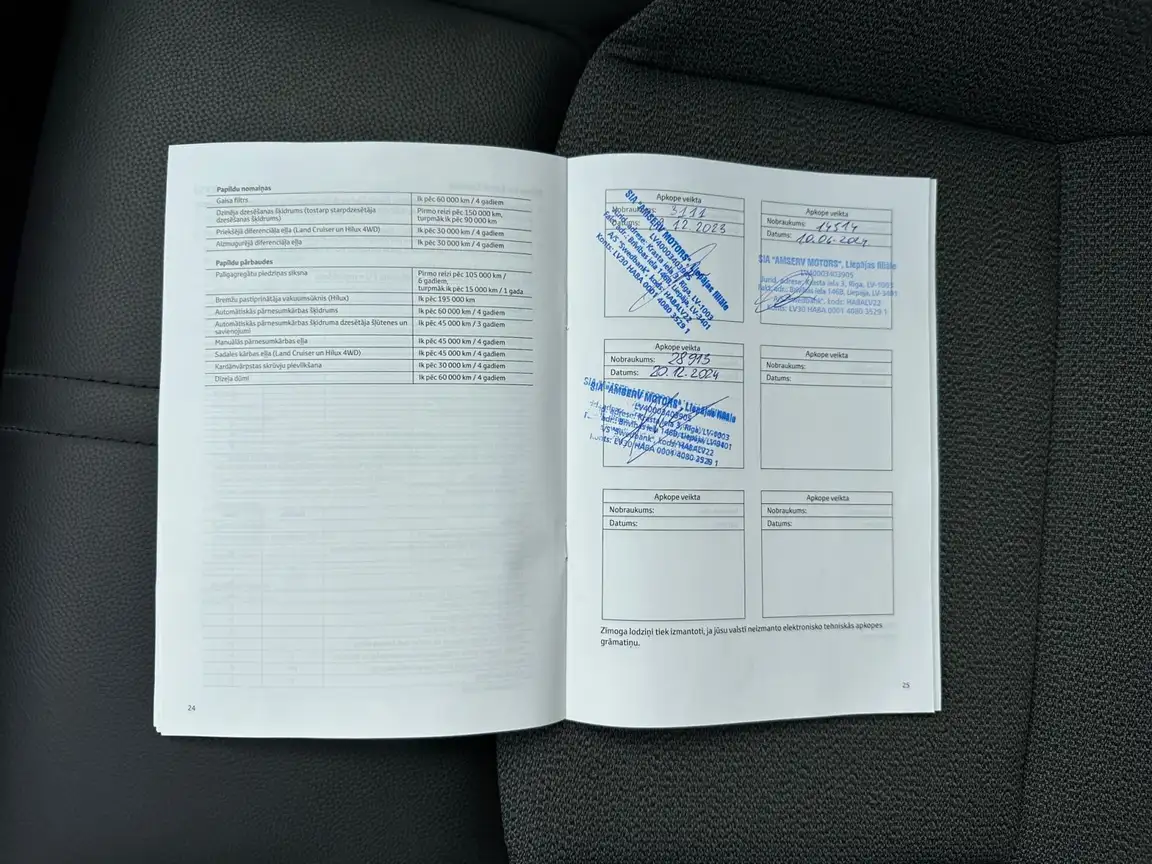 Papildu nomaiņas
Gaisa filtrs Ik pēc 60 000 km / 4 gadiem
Dzinēja dzesēšanas šķidrums (tostarp starpdzesētāja dzesēšanas šķidrums) Pirmo reizi pēc 150 000 km, turpmāk ik pēc 90 000 km
Priekšējā diferenciāļa eļļa (Land Cruiser un Hilux 4WD) Ik pēc 30 000 km / 4 gadiem
Aizmugurējā diferenciāļa eļļa Ik pēc 30 000 km / 4 gadiem
Papildu pārbaudes
Palīgagregātu piedziņas siksna Pirmo reizi pēc 105 000 km / 6 gadiem, turpmāk ik pēc 15 000 km / 1 gada
Bremžu pastiprinātāja vakuumsūknis (Hilux) Ik pēc 195 000 km
Automātiskās pārnesumkārbas šķidrums Ik pēc 60 000 km / 4 gadiem
Automātiskās pārnesumkārbas šķidruma dzesētāja šļūtenes un savienojumi Ik pēc 45 000 km / 3 gadiem
Manuālās pārnesumkārbas eļļa Ik pēc 45 000 km / 4 gadiem
Sadales kārbas eļļa (Land Cruiser un Hilux 4WD) Ik pēc 45 000 km / 4 gadiem
Kardānvārpstas skrūvju pievilkšana Ik pēc 30 000 km / 4 gadiem
Dīzeļa dūmi Ik pēc 60 000 km / 4 gadiem
24
Apkope veikta
Nobraukums: 3111
Datums: 12.2023
SIA "AMSERV MOTORS", Liepājas filiāle
LV40003403905
Jurid. adrese: Krasta iela 3, Rīga, LV-1003
Fakt. adr.: Brīvības iela 146B, Liepāja, LV-3401
A/S "Swedbank", kods: HABALV22
Konts: LV30 HABA 0001 4080 3529 1
Apkope veikta
Nobraukums: 14514
Datums: 10.06.2024
SIA "AMSERV MOTORS", Liepājas filiāle
LV40003403905
Jurid. adrese: Krasta iela 3, Rīga, LV-1003
Fakt. adr.: Brīvības iela 146B, Liepāja, LV-3401
A/S "Swedbank", kods: HABALV22
Konts: LV30 HABA 0001 4080 3529 1
Apkope veikta
Nobraukums: 28915
Datums: 20.12.2024
SIA "AMSERV MOTORS", Liepājas filiāle
LV40003403905
adrese: Krasta iela 3, Rīga, LV-1003
adr.: Brīvības iela 146B, Liepāja, LV-3401
A/S "Swedbank", kods: HABALV22
Konts: LV30 HABA 0001 4080 3529 1
Apkope veikta
Nobraukums:
Datums:
Apkope veikta
Nobraukums:
Datums:
Apkope veikta
Nobraukums:
Datums:
Zīmoga lodziņi tiek izmantoti, ja jūsu valstī neizmanto elektronisko tehniskās apkopes
grāmatiņu.
25